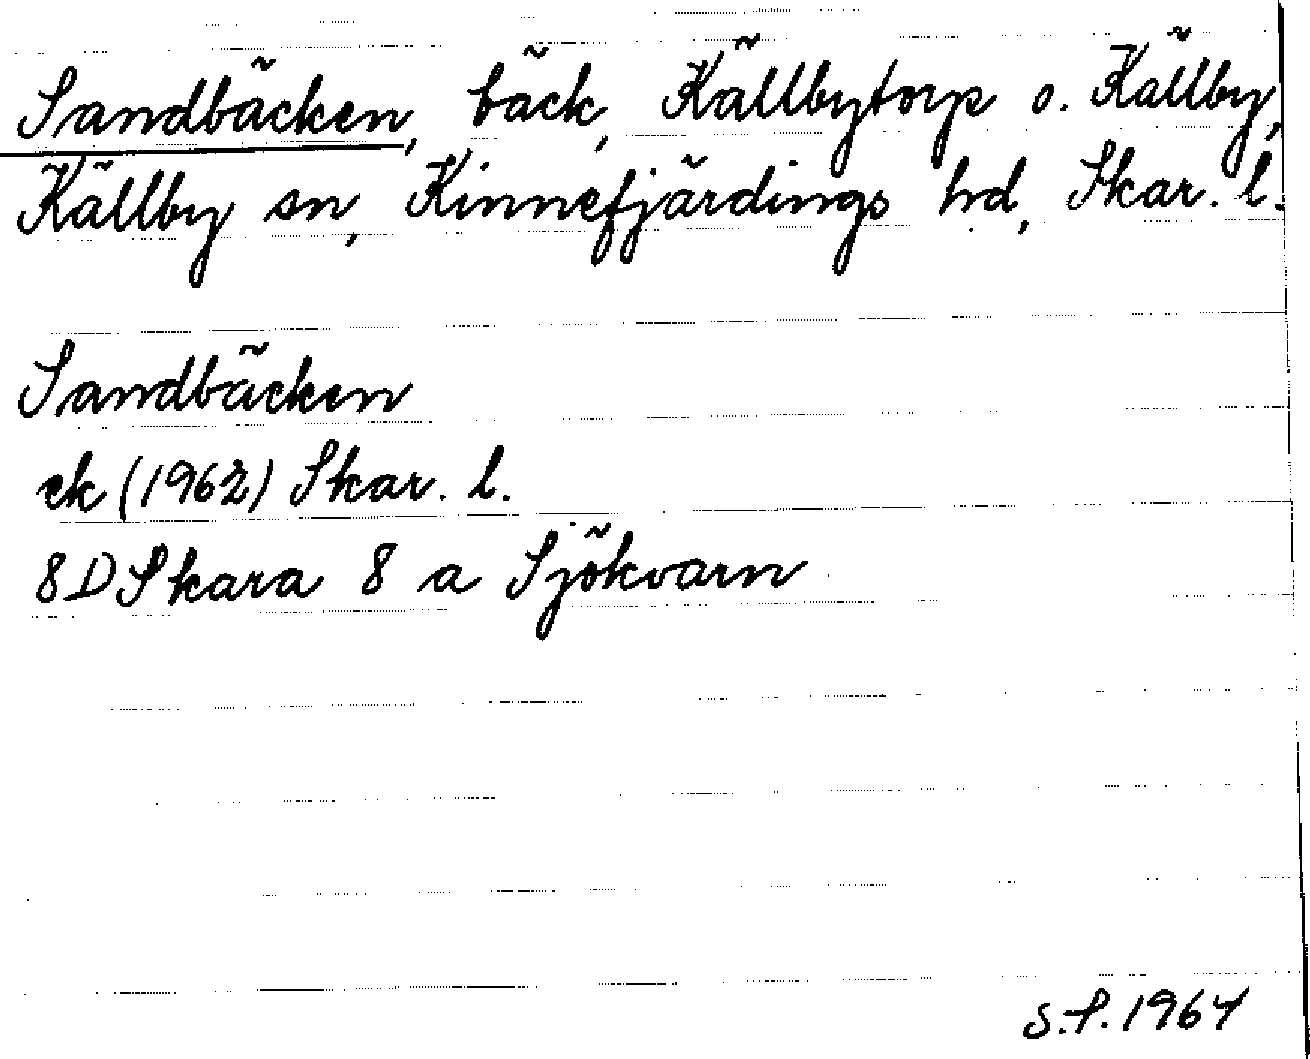 Sandbäcken, bäck, Källbytorp o. Källby,
Källby sn, Kinnefjärdings hd, Skar. l.
Sandbäcken
ek (1962) Skar. l.
8D Skara 8 a Sjökvarn
S.S. 1964